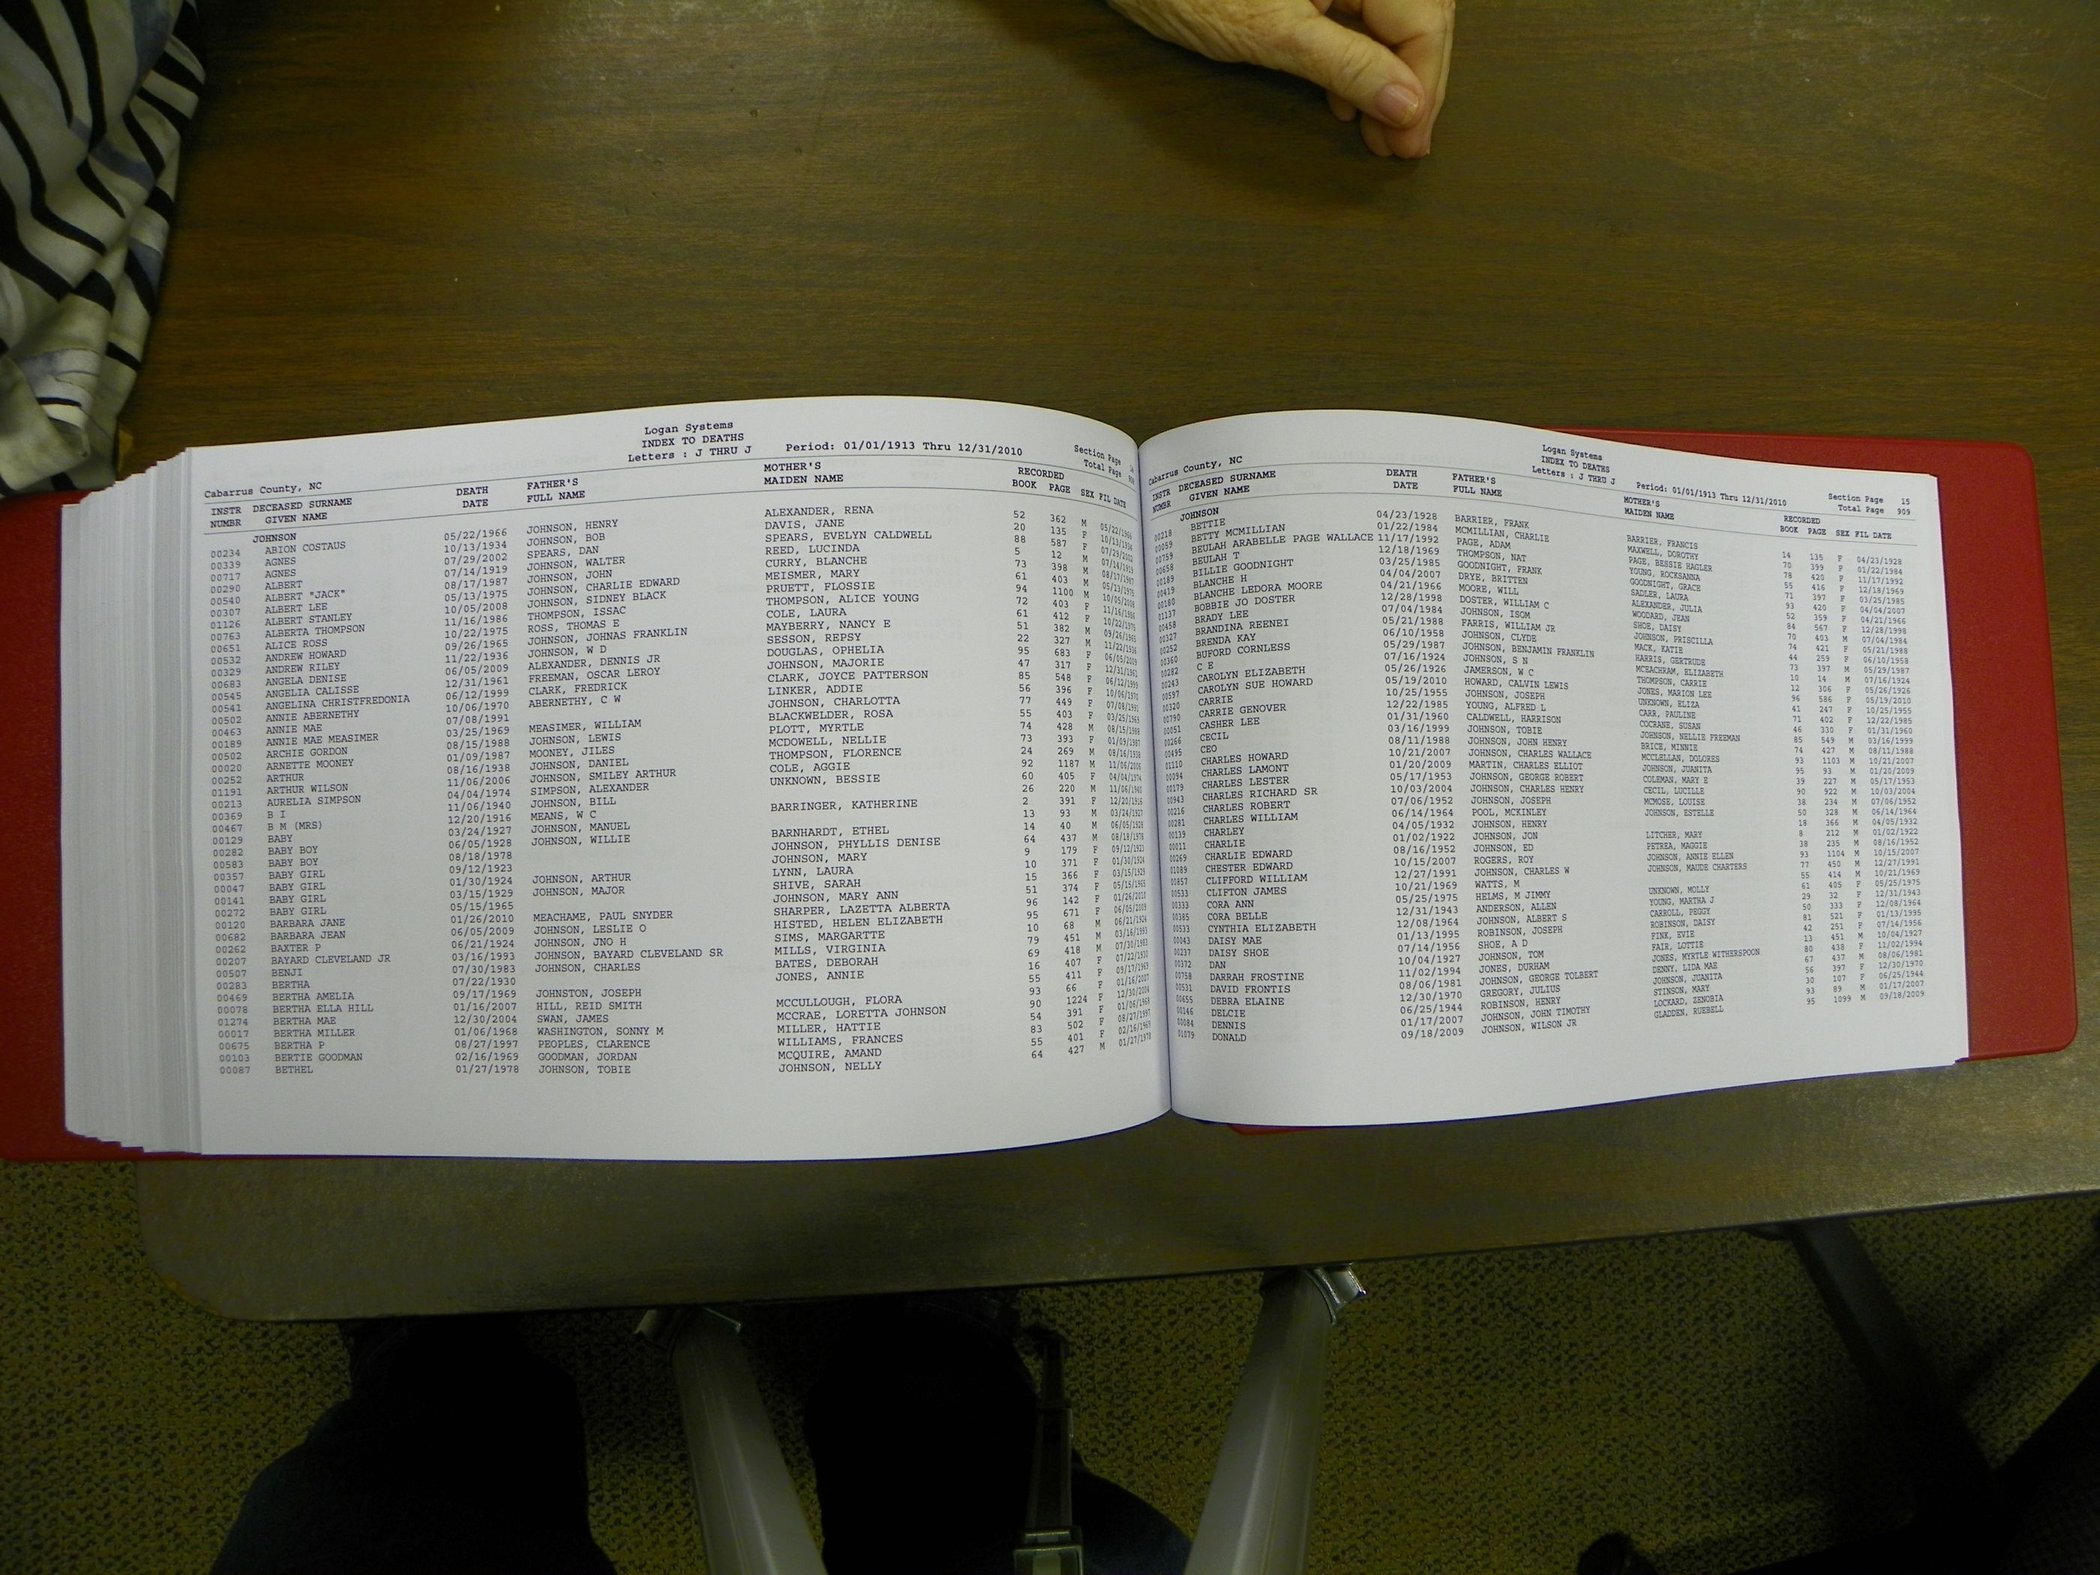 Logan Systems
INDEX TO DEATHS
Cabarrus County, NC Letters : J THRU J Period: 01/01/1913 Thru 12/31/2010 Section Page
Total Page
INSTR NUMBR DECEASED SURNAME GIVEN NAME DEATH DATE FATHER'S FULL NAME MOTHER'S MAIDEN NAME RECORDED BOOK PAGE SEX FIL DATE
JOHNSON
00234 ABION COSTAUS 05/22/1966 JOHNSON, HENRY ALEXANDER, RENA 52 362 M 05/22/1966
00339 AGNES 10/13/1934 JOHNSON, BOB DAVIS, JANE 20 135 F 10/13/1934
00717 AGNES 07/29/2002 SPEARS, DAN SPEARS, EVELYN CALDWELL 88 587 F 07/29/2002
00290 ALBERT 07/14/1919 JOHNSON, WALTER REED, LUCINDA 5 12 M 07/14/1919
00540 ALBERT "JACK" 08/17/1987 JOHNSON, JOHN CURRY, BLANCHE 73 398 M 08/17/1987
00307 ALBERT LEE 05/13/1975 JOHNSON, CHARLIE EDWARD MEISMER, MARY 61 403 M 05/13/1975
01126 ALBERT STANLEY 10/05/2008 JOHNSON, SIDNEY BLACK PRUETT, FLOSSIE 94 1100 M 10/05/2008
00763 ALBERTA THOMPSON 11/16/1986 THOMPSON, ISSAC THOMPSON, ALICE YOUNG 72 403 F 11/16/1986
00651 ALICE ROSS 10/22/1975 ROSS, THOMAS E COLE, LAURA 61 412 F 10/22/1975
00532 ANDREW HOWARD 09/26/1965 JOHNSON, JOHNAS FRANKLIN MAYBERRY, NANCY E 51 382 M 09/26/1965
00329 ANDREW RILEY 11/22/1936 JOHNSON, W D SESSON, REPSY 22 327 M 11/22/1936
00683 ANGELA DENISE 06/05/2009 ALEXANDER, DENNIS JR DOUGLAS, OPHELIA 95 683 F 06/05/2009
00545 ANGELIA CALISSE 12/31/1961 FREEMAN, OSCAR LEROY JOHNSON, MAJORIE 47 317 F 12/31/1961
00541 ANGELINA CHRISTFREDONIA 06/12/1999 CLARK, FREDRICK CLARK, JOYCE PATTERSON 85 548 F 06/12/1999
00502 ANNIE ABERNETHY 10/06/1970 ABERNETHY, C W LINKER, ADDIE 56 396 F 10/06/1970
00463 ANNIE MAE 07/08/1991 JOHNSON, CHARLOTTA 77 449 F 07/08/1991
00189 ANNIE MAE MEASIMER 03/25/1969 MEASIMER, WILLIAM BLACKWELDER, ROSA 55 403 F 03/25/1969
00502 ARCHIE GORDON 08/15/1988 JOHNSON, LEWIS PLOTT, MYRTLE 74 428 M 08/15/1988
00020 ARNETTE MOONEY 01/09/1987 MOONEY, JILES MCDOWELL, NELLIE 73 393 F 01/09/1987
00252 ARTHUR 08/16/1938 JOHNSON, DANIEL THOMPSON, FLORENCE 24 269 M 08/16/1938
01191 ARTHUR WILSON 11/06/2006 JOHNSON, SMILEY ARTHUR COLE, AGGIE 92 1187 M 11/06/2006
00213 AURELIA SIMPSON 04/04/1974 SIMPSON, ALEXANDER UNKNOWN, BESSIE 60 405 F 04/04/1974
00369 B I 11/06/1940 JOHNSON, BILL 26 220 M 11/06/1940
00467 B M (MRS) 12/20/1916 MEANS, W C BARRINGER, KATHERINE 2 391 F 12/20/1916
00129 BABY 03/24/1927 JOHNSON, MANUEL 13 93 M 03/24/1927
00282 BABY BOY 06/05/1928 JOHNSON, WILLIE BARNHARDT, ETHEL 14 40 M 06/05/1928
00583 BABY BOY 08/18/1978 JOHNSON, PHYLLIS DENISE 64 437 M 08/18/1978
00357 BABY GIRL 09/12/1923 JOHNSON, MARY 9 179 F 09/12/1923
00047 BABY GIRL 01/30/1924 JOHNSON, ARTHUR LYNN, LAURA 10 371 F 01/30/1924
00141 BABY GIRL 03/15/1929 JOHNSON, MAJOR SHIVE, SARAH 15 366 F 03/15/1929
00272 BABY GIRL 05/15/1965 JOHNSON, MARY ANN 51 374 F 05/15/1965
00120 BARBARA JANE 01/26/2010 MEACHAME, PAUL SNYDER SHARPER, LAZETTA ALBERTA 96 142 F 01/26/2010
00682 BARBARA JEAN 06/05/2009 JOHNSON, LESLIE O HISTED, HELEN ELIZABETH 95 671 F 06/05/2009
00262 BAXTER P 06/21/1924 JOHNSON, JNO H SIMS, MARGARTTE 10 68 M 06/21/1924
00207 BAYARD CLEVELAND JR 03/16/1993 JOHNSON, BAYARD CLEVELAND SR MILLS, VIRGINIA 79 451 M 03/16/1993
00507 BENJI 07/30/1983 JOHNSON, CHARLES BATES, DEBORAH 69 418 M 07/30/1983
00283 BERTHA 07/22/1930 JONES, ANNIE 16 407 F 07/22/1930
00469 BERTHA AMELIA 09/17/1969 JOHNSTON, JOSEPH 55 411 F 09/17/1969
00078 BERTHA ELLA HILL 01/16/2007 HILL, REID SMITH MCCULLOUGH, FLORA 93 66 F 01/16/2007
01274 BERTHA MAE 12/30/2004 SWAN, JAMES MCCRAE, LORETTA JOHNSON 90 1224 F 12/30/2004
00017 BERTHA MILLER 01/06/1968 WASHINGTON, SONNY M MILLER, HATTIE 54 391 F 01/06/1968
00675 BERTHA P 08/27/1997 PEOPLES, CLARENCE WILLIAMS, FRANCES 83 502 F 08/27/1997
00103 BERTIE GOODMAN 02/16/1969 GOODMAN, JORDAN MCQUIRE, AMAND 55 401 F 02/16/1969
00087 BETHEL 01/27/1978 JOHNSON, TOBIE JOHNSON, NELLY 64 427 M 01/27/1978
Logan Systems
INDEX TO DEATHS
Cabarrus County, NC Letters : J THRU J Period: 01/01/1913 Thru 12/31/2010 Section Page 15
Total Page 909
INSTR NUMBR DECEASED SURNAME GIVEN NAME DEATH DATE FATHER'S FULL NAME MOTHER'S MAIDEN NAME RECORDED BOOK PAGE SEX FIL DATE
JOHNSON
00218 BETTIE 04/23/1928 BARRIER, FRANK BARRIER, FRANCIS 14 135 F 04/23/1928
00059 BETTY MCMILLIAN 01/22/1984 MCMILLIAN, CHARLIE MAXWELL, DOROTHY 70 399 F 01/22/1984
00759 BEULAH ARABELLE PAGE WALLACE 11/17/1992 PAGE, ADAM PAGE, BESSIE HAGLER 78 420 F 11/17/1992
00658 BEULAH T 12/18/1969 THOMPSON, NAT YOUNG, ROCKSANNA 55 416 F 12/18/1969
00189 BILLIE GOODNIGHT 03/25/1985 GOODNIGHT, FRANK GOODNIGHT, GRACE 71 397 F 03/25/1985
00419 BLANCHE H 04/04/2007 DRYE, BRITTEN SADLER, LAURA 93 420 F 04/04/2007
00180 BLANCHE LEDORA MOORE 04/21/1966 MOORE, WILL ALEXANDER, JULIA 52 359 F 04/21/1966
01137 BOBBIE JO DOSTER 12/28/1998 DOSTER, WILLIAM C WOODARD, JEAN 84 567 F 12/28/1998
00458 BRADY LEE 07/04/1984 JOHNSON, ISOM SHOE, DAISY 70 403 M 07/04/1984
00327 BRANDINA REENEI 05/21/1988 FARRIS, WILLIAM JR JOHNSON, PRISCILLA 74 421 F 05/21/1988
00252 BRENDA KAY 06/10/1958 JOHNSON, CLYDE MACK, KATIE 44 259 F 06/10/1958
00360 BUFORD CORNLESS 05/29/1987 JOHNSON, BENJAMIN FRANKLIN HARRIS, GERTRUDE 73 397 M 05/29/1987
00282 C E 07/16/1924 JOHNSON, S N MCEACHRAM, ELIZABETH 10 14 M 07/16/1924
00243 CAROLYN ELIZABETH 05/26/1926 JAMERSON, W C THOMPSON, CARRIE 12 306 F 05/26/1926
00597 CAROLYN SUE HOWARD 05/19/2010 HOWARD, CALVIN LEWIS JONES, MARION LEE 96 586 F 05/19/2010
00320 CARRIE 10/25/1955 JOHNSON, JOSEPH UNKNOWN, ELIZA 41 247 F 10/25/1955
00790 CARRIE GENOVER 12/22/1985 YOUNG, ALFRED L CARR, PAULINE 71 402 F 12/22/1985
00051 CASHER LEE 01/31/1960 CALDWELL, HARRISON COCRANE, SUSAN 46 330 F 01/31/1960
00266 CECIL 03/16/1999 JOHNSON, TOBIE JOHNSON, NELLIE FREEMAN 85 549 M 03/16/1999
00495 CEO 08/11/1988 JOHNSON, JOHN HENRY BRICE, MINNIE 74 427 M 08/11/1988
01110 CHARLES HOWARD 10/21/2007 JOHNSON, CHARLES WALLACE MCCLELLAN, DOLORES 93 1103 M 10/21/2007
00094 CHARLES LAMONT 01/20/2009 MARTIN, CHARLES ELLIOT JOHNSON, JUANITA 95 93 M 01/20/2009
00179 CHARLES LESTER 05/17/1953 JOHNSON, GEORGE ROBERT COLEMAN, MARY E 39 227 M 05/17/1953
00943 CHARLES RICHARD SR 10/03/2004 JOHNSON, CHARLES HENRY CECIL, LUCILLE 90 922 M 10/03/2004
00216 CHARLES ROBERT 07/06/1952 JOHNSON, JOSEPH MCMOSE, LOUISE 38 234 M 07/06/1952
00281 CHARLES WILLIAM 06/14/1964 POOL, MCKINLEY JOHNSON, ESTELLE 50 328 M 06/14/1964
00139 CHARLEY 04/05/1932 JOHNSON, HENRY 18 366 M 04/05/1932
00011 CHARLIE 01/02/1922 JOHNSON, JON LITCHER, MARY 8 212 M 01/02/1922
00269 CHARLIE EDWARD 08/16/1952 JOHNSON, ED PETREA, MAGGIE 38 235 M 08/16/1952
01089 CHESTER EDWARD 10/15/2007 ROGERS, ROY JOHNSON, ANNIE ELLEN 93 1104 M 10/15/2007
00857 CLIFFORD WILLIAM 12/27/1991 JOHNSON, CHARLES W JOHNSON, MAUDE CHARTERS 77 450 M 12/27/1991
00533 CLIFTON JAMES 10/21/1969 WATTS, M 55 414 M 10/21/1969
00333 CORA ANN 05/25/1975 HELMS, M JIMMY UNKNOWN, MOLLY 61 405 F 05/25/1975
00385 CORA BELLE 12/31/1943 ANDERSON, ALLEN YOUNG, MARTHA J 29 32 F 12/31/1943
00533 CYNTHIA ELIZABETH 12/08/1964 JOHNSON, ALBERT S CARROLL, PEGGY 50 333 F 12/08/1964
00043 DAISY MAE 01/13/1995 ROBINSON, JOSEPH ROBINSON, DAISY 81 521 F 01/13/1995
00237 DAISY SHOE 07/14/1956 SHOE, A D FINK, EVIE 42 251 F 07/14/1956
00372 DAN 10/04/1927 JOHNSON, TOM FAIR, LOTTIE 13 451 M 10/04/1927
00758 DARRAH FROSTINE 11/02/1994 JONES, DURHAM JONES, MYRTLE WITHERSPOON 80 438 F 11/02/1994
00531 DAVID FRONTIS 08/06/1981 JOHNSON, GEORGE TOLBERT DENNY, LIDA MAE 67 437 M 08/06/1981
00655 DEBRA ELAINE 12/30/1970 GREGORY, JULIUS JOHNSON, JUANITA 56 397 F 12/30/1970
00146 DELCIE 06/25/1944 ROBINSON, HENRY STINSON, MARY 30 107 F 06/25/1944
00084 DENNIS 01/17/2007 JOHNSON, JOHN TIMOTHY LOCKARD, ZENOBIA 93 89 M 01/17/2007
01079 DONALD 09/18/2009 JOHNSON, WILSON JR GLADDEN, RUEBELL 95 1099 M 09/18/2009